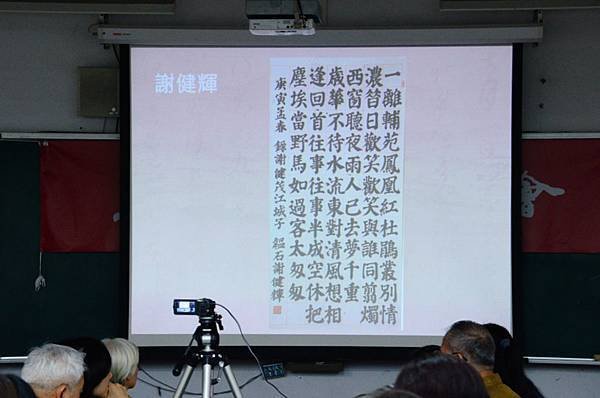 謝健輝
一離輔苑鳳凰紅杜鵑叢別情
濃昔日歡笑歡笑與誰同翦燭
西窗聽夜雨人已去夢千重
歲華不待水流東對清風想相
逢回首往事往事半成空休把
塵埃當野馬如過客太匆匆
庚寅孟春 錄謝健茂江城子 石謝健輝
會